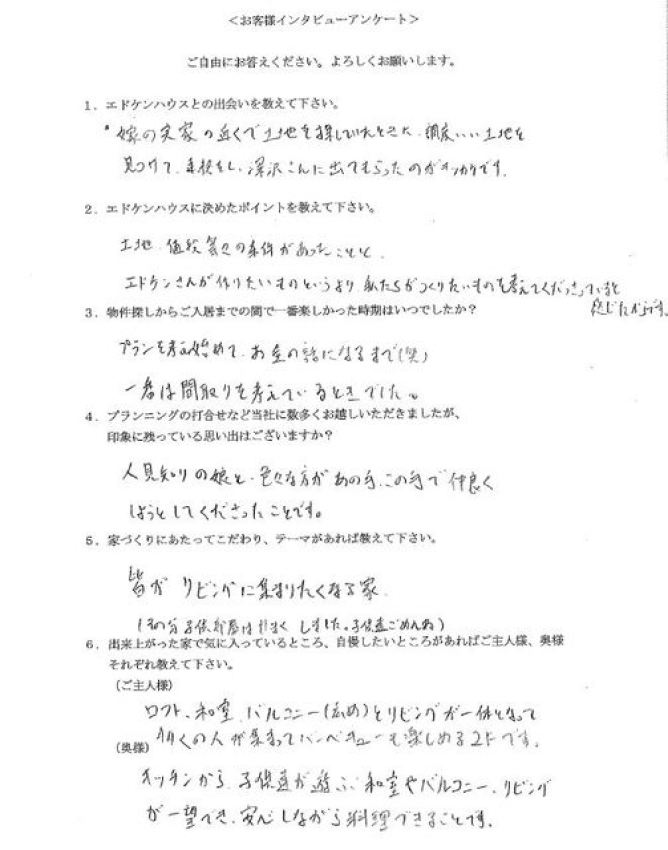 ＜お客様インタビューアンケート＞
ご自由にお答えください。よろしくお願いします。
１．エドケンハウスとの出会いを教えて下さい。
嫁の実家の近くで土地を探していたところ、調度いい土地を
見つけて、連絡をし、深沢さんに出てもらったのがきっかけです。
２．エドケンハウスに決めたポイントを教えて下さい。
土地、値段等々の条件があったことと、
エドケンさんが作りたいものというより、私たちがつくりたいものを考えてくださっていると
感じたからです。
３．物件探しからご入居までの間で一番楽しかった時期はいつでしたか？
プランを考え始めて、お金の話になるまで（笑）
一番は間取りを考えているときでした。
４．プランニングの打合せなど当社に数多くお越しいただきましたが、
印象に残っている思い出はございますか？
人見知りの娘と、色々な方があの手、この手で仲良く
しようとしてくださったことです。
５．家づくりにあたってこだわり、テーマがあれば教えて下さい。
皆が リビングに集まりたくなる家
（その分子供部屋はせまく しました。子供達ごめんね）
６．出来上がった家で気に入っているところ、自慢したいところがあればご主人様、奥様
それぞれ教えて下さい。
（ご主人様）
ロフト、和室、バルコニー（広め）とリビングが一体となって
多くの人が集まってバーベキューも楽しめる2Fです。
（奥様）
キッチンから、子供達が遊ぶ 和室やバルコニー、リビング
が一望でき、安心しながら料理できることです。